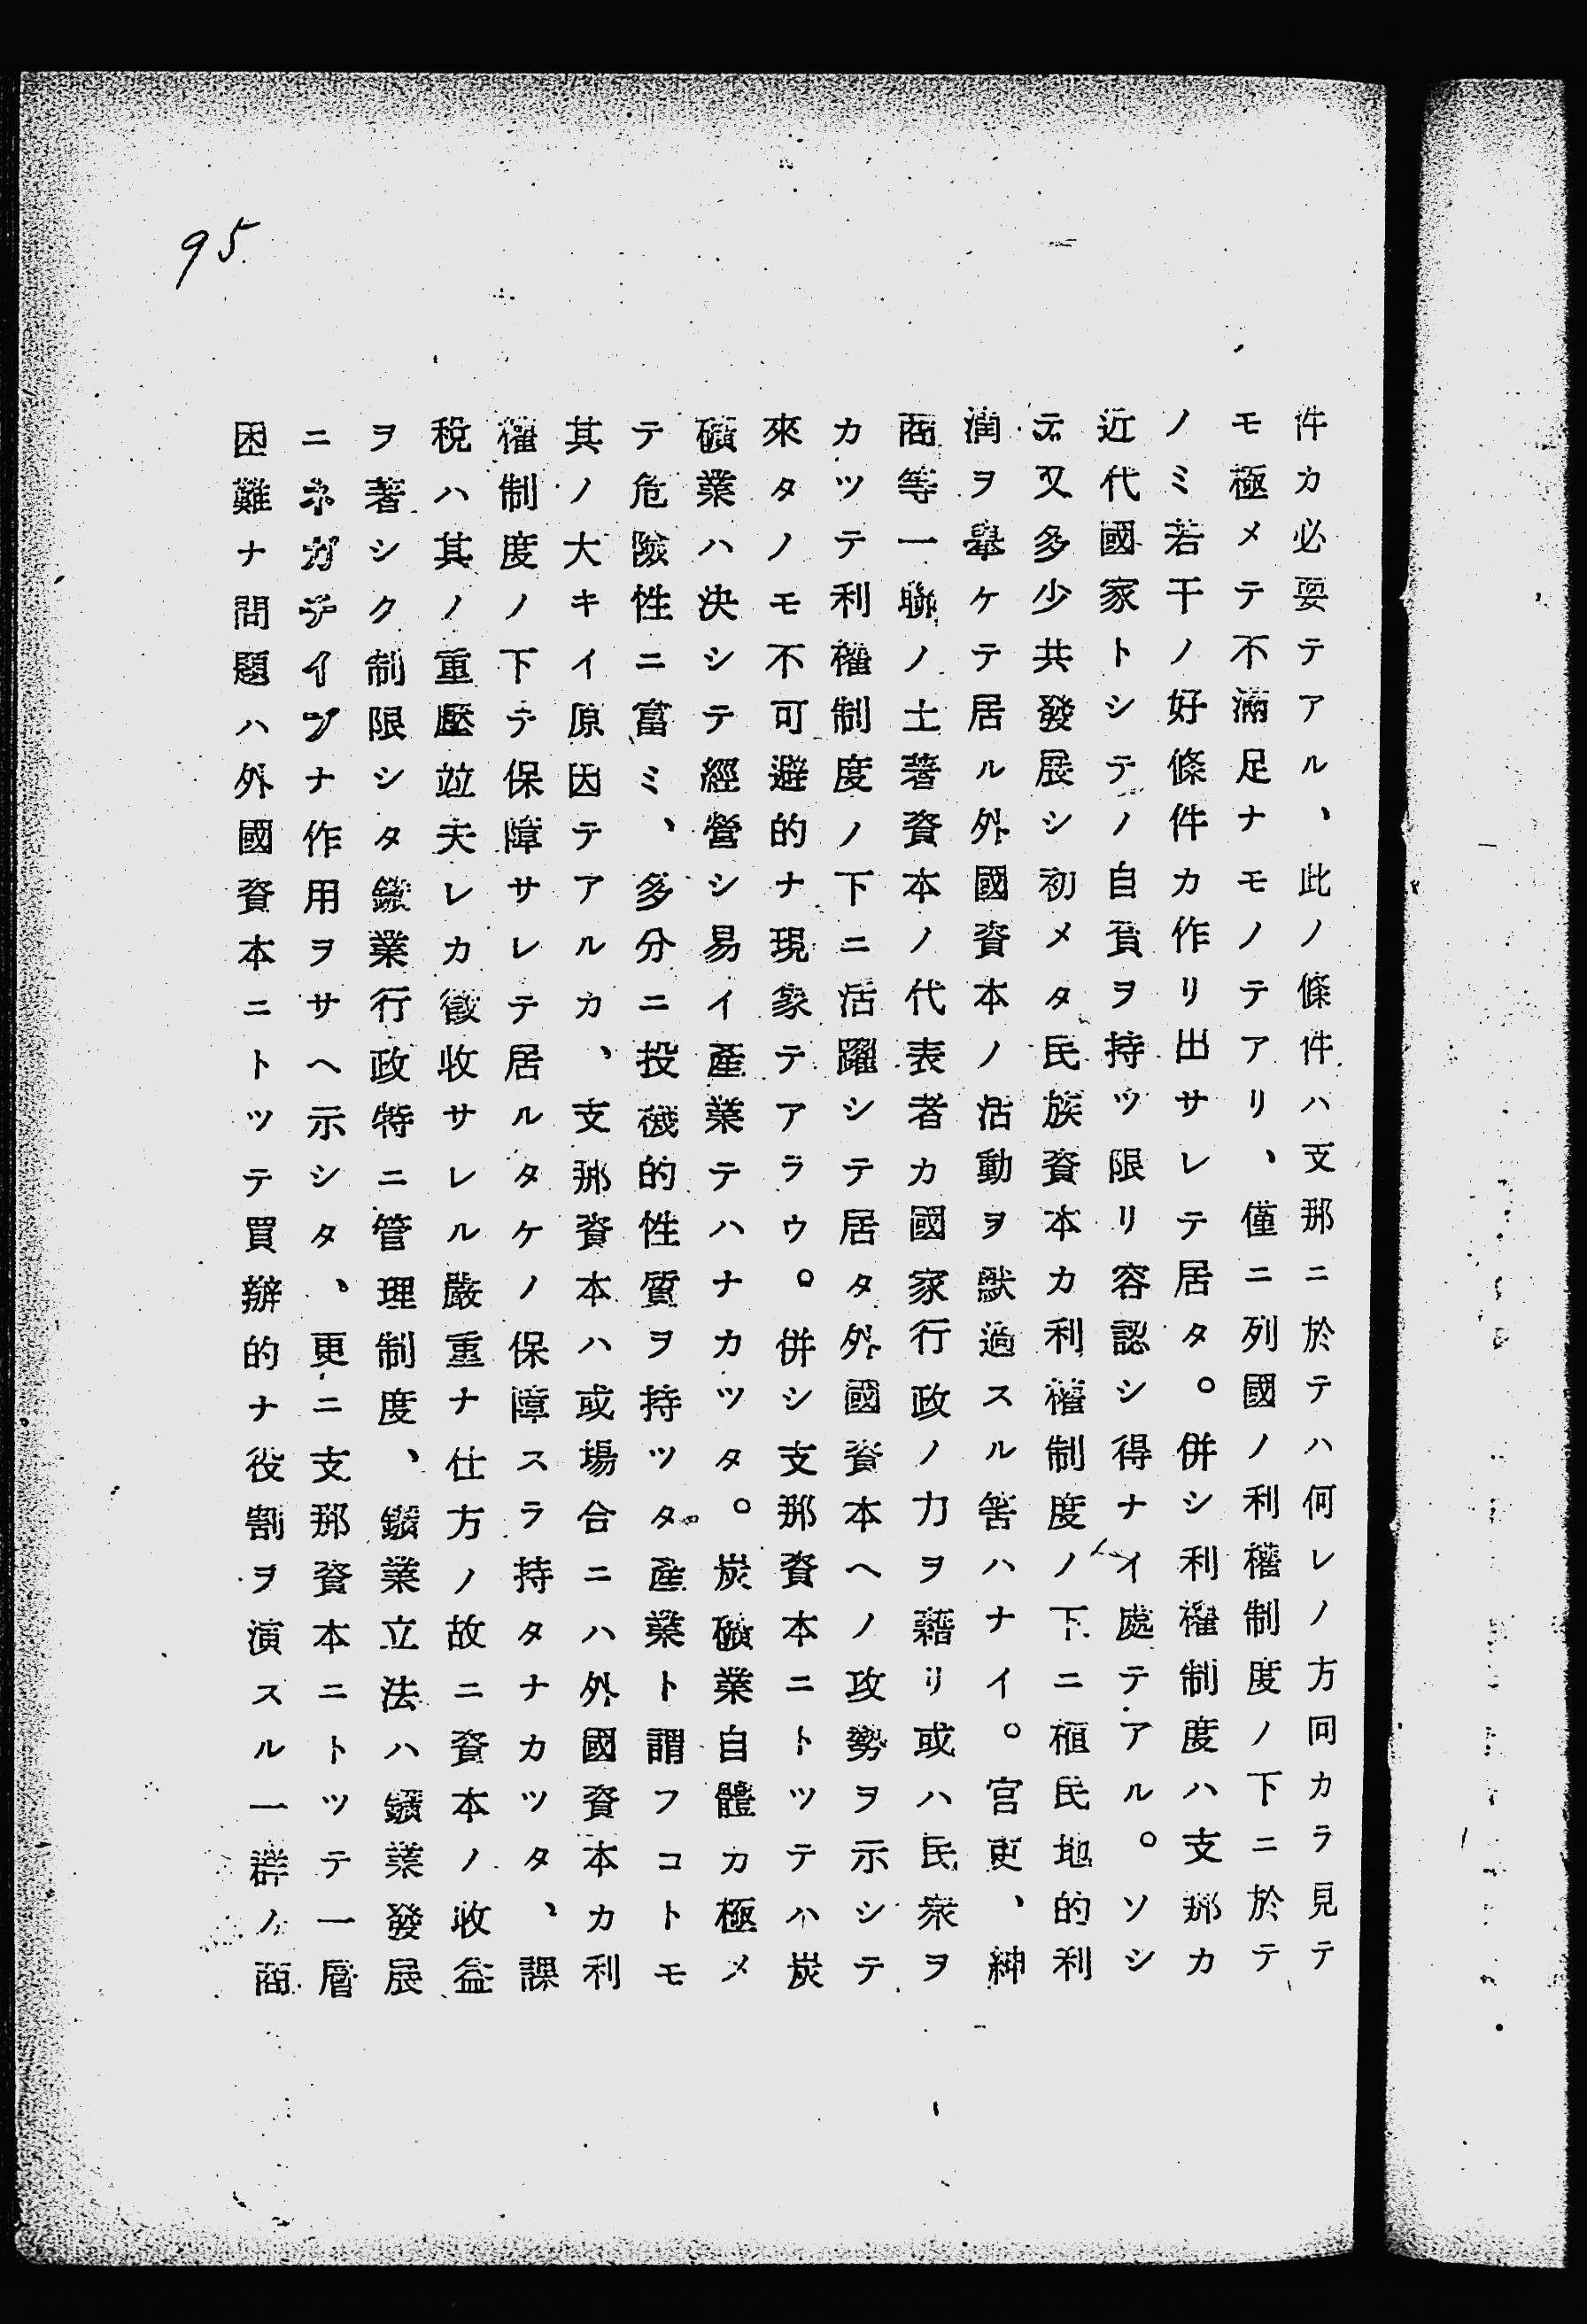 95.
件カ必要テアル、此ノ條件ハ支那ニ於テハ何レノ方向カラ見テ
モ極メテ不滿足ナモノテアリ、僅ニ列國ノ利權制度ノ下ニ於テ
ノミ若干ノ好條件カ作リ出サレテ居タ。併シ利權制度ハ支那カ
近代國家トシテノ自負ヲ持ツ限リ容認シ得ナイ處テアル。ソシ
テ又多少共發展シ初メタ民族資本カ利權制度ノ下ニ植民地的利
潤ヲ擧ケテ居ル外國資本ノ活動ヲ默過スル筈ハナイ。官吏、紳
商等一聯ノ土著資本ノ代表者カ國家行政ノ力ヲ藉リ或ハ民衆ヲ
カツテ利權制度ノ下ニ活躍シテ居タ外國資本ヘノ攻勢ヲ示シテ
來タノモ不可避的ナ現象テアラウ。併シ支那資本ニトツテハ炭
礦業ハ決シテ經營シ易イ產業テハナカツタ。炭礦業自體カ極メ
テ危險性ニ富ミ、多分ニ投機的性質ヲ持ツタ產業ト謂フコトモ
其ノ大キイ原因テアルカ、支那資本ハ或場合ニハ外國資本カ利
權制度ノ下テ保障サレテ居ルタケノ保障スラ持タナカツタ、課
稅ハ其ノ重壓竝夫レカ徵收サレル嚴重ナ仕方ノ故ニ資本ノ收益
ヲ著シク制限シタ鑛業行政特ニ管理制度、鑛業立法ハ鑛業發展
ニネガチイブナ作用ヲサヘ示シタ、更ニ支那資本ニトツテ一層
困難ナ問題ハ外國資本ニトツテ買辦的ナ役割ヲ演スル一群ノ商